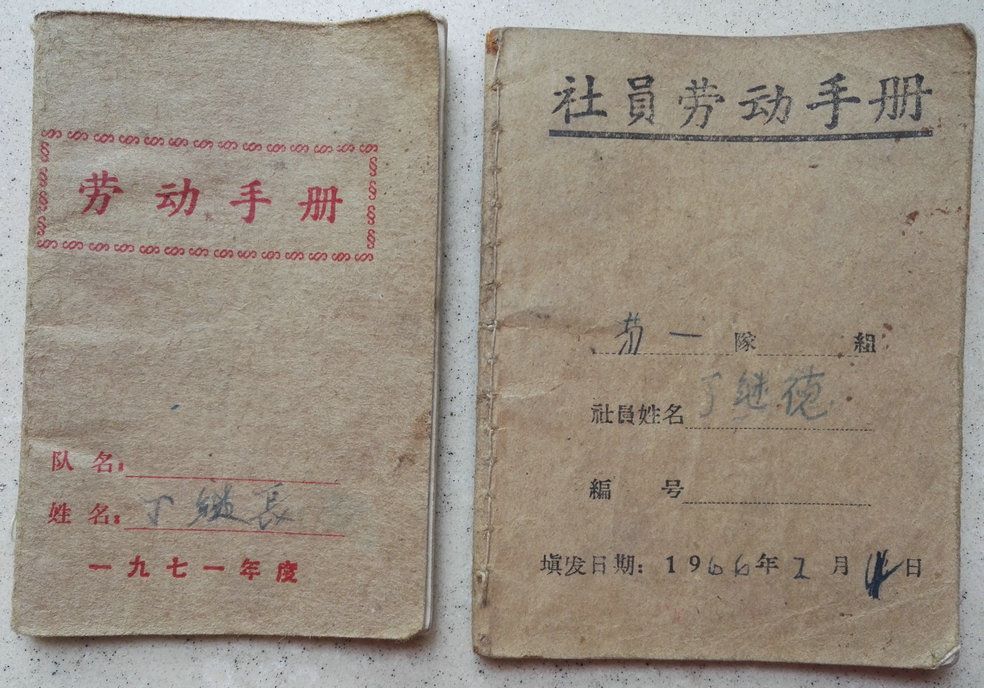 劳动手册
队名：
姓名：丁继長
一九七一年度
社員劳动手册
劳一隊 組
社員姓名丁继德
編 号
填发日期：1966年1月 日